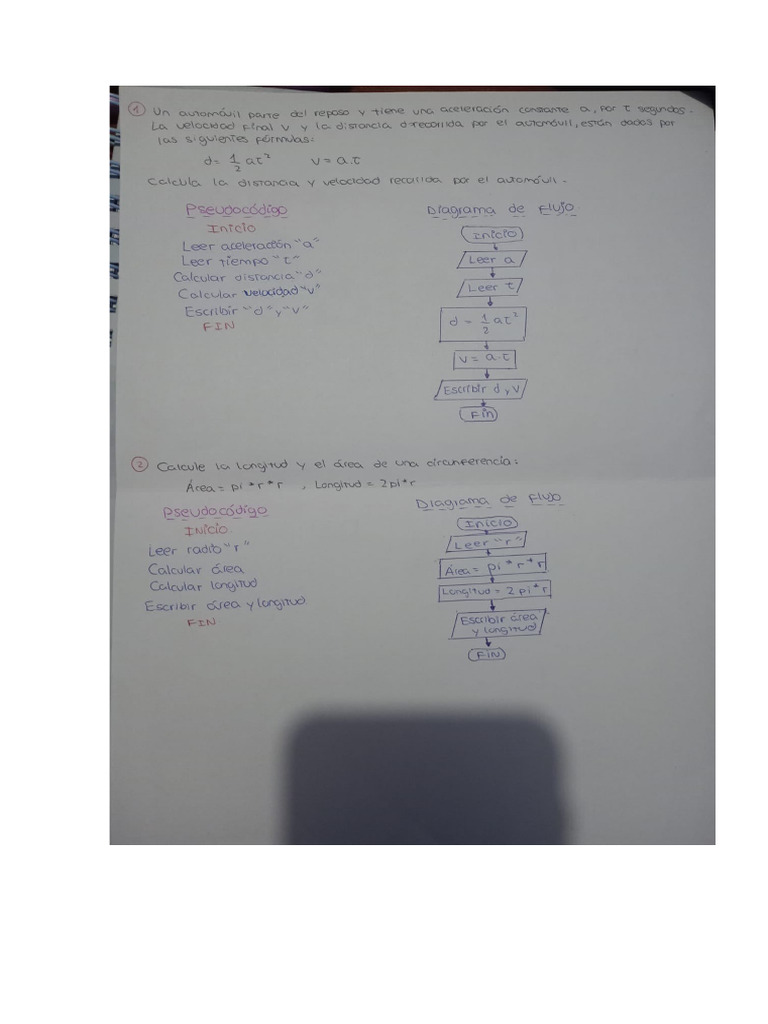 1 Un automóvil parte del reposo y tiene una aceleración constante a, por t segundos.
La velocidad final v y la distancia d recorrida por el automóvil, están dados por
las siguientes fórmulas:
d = 1/2 at² v = a.t
Calcula la distancia y velocidad recorrida por el automóvil.
Pseudocódigo
Inicio
Leer aceleración "a"
Leer tiempo "t"
Calcular distancia "d"
Calcular velocidad "v"
Escribir "d" y "v"
FIN
Diagrama de Flujo
Inicio
Leer a
Leer t
d = 1/2 at²
v = a.t
Escribir d y v
Fin
2 Calcule la longitud y el área de una circunferencia:
Área = pi * r * r , Longitud = 2pi*r
Pseudocódigo
INICIO
Leer radio "r"
Calcular área
Calcular longitud
Escribir área y longitud
FIN
Diagrama de Flujo
Inicio
Leer "r"
Área = pi * r * r
Longitud = 2 pi * r
Escribir área
y longitud
FIN